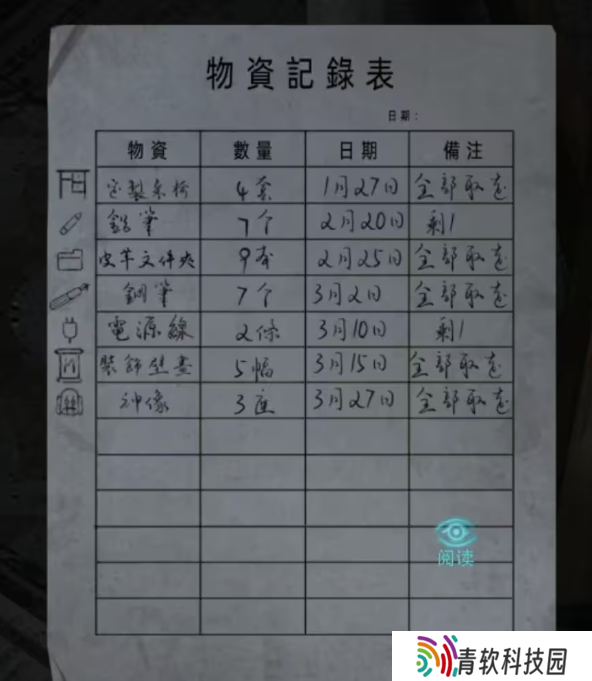 物資記錄表
日期：
物資 數量 日期 備注
定製桌椅 4套 1月27日 全部取走
鉛筆 7个 2月20日 剩1
皮革文件夾 9本 2月25日 全部取走
鋼筆 7个 3月2日 全部取走
電源線 2條 3月10日 剩1
裝飾壁畫 5幅 3月15日 全部取走
神像 3座 3月27日 全部取走
阅读
青软科技园